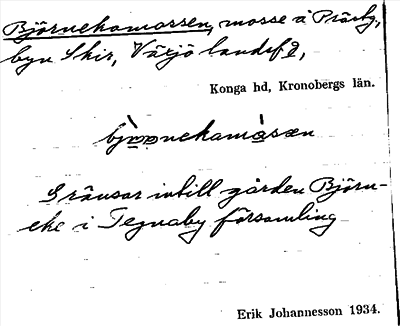 Björnekamossen, mosse å Prästg,
byn Skir, Växjö landsf 9,
Konga hd, Kronobergs län.
Gränsar intill gården Björn-
eke i Tegnaby församling
Erik Johannesson 1934.